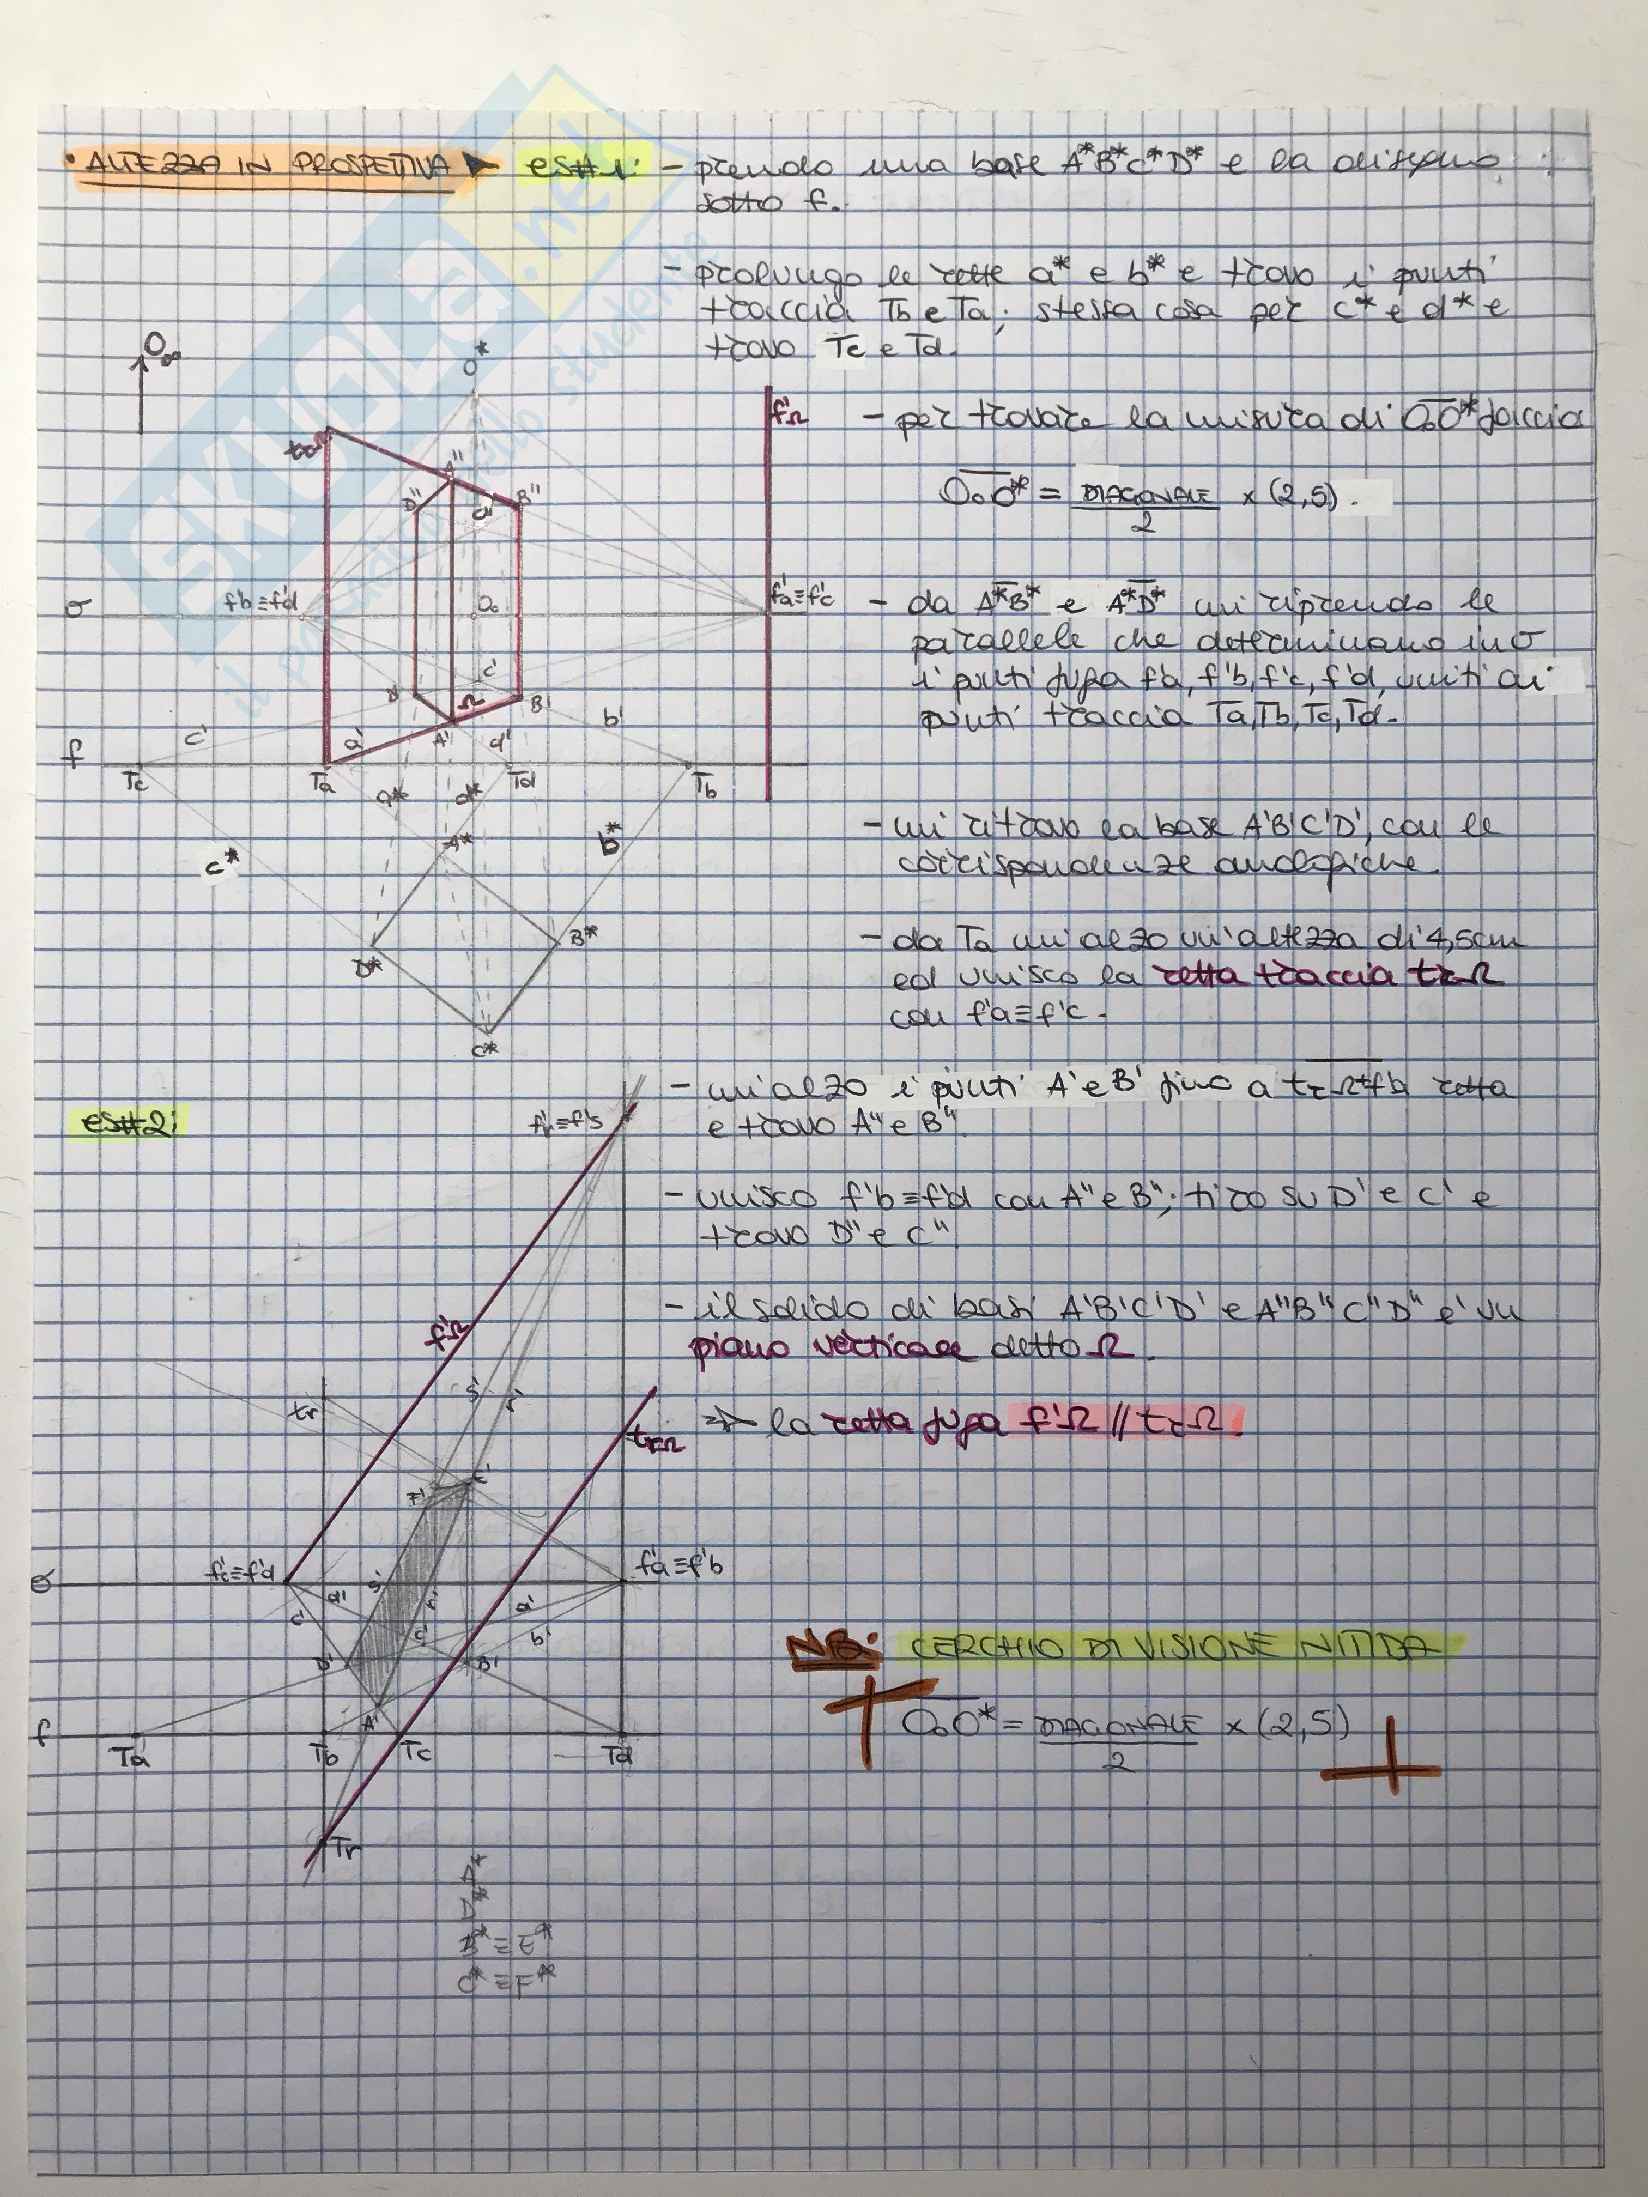 • ALTEZZA IN PROSPETTIVA ► es#1: - prendo una base A*B*C*D* e la disegno
sotto f.
- prolungo le rette a* e b* e trovo i punti
traccia Tb e Ta; stessa cosa per c* e d* e
trovo Tc e Td.
- per trovare la misura di O₀O* faccio
O₀O* = DIAGONALE/2 × (2,5).
- da A*B* e A*D* mi riprendo le
parallele che determinano in σ
i punti fuga f'a, f'b, f'c, f'd, uniti ai
punti traccia Ta, Tb, Tc, Td.
- mi ritrovo la base A'B'C'D', con le
corrispondenze omologiche.
- da Ta mi alzo un'altezza di 4,5cm
ed unisco la retta traccia trΩ
con f'a≡f'c.
- mi alzo i punti A' e B' fino a trΩf'a retta
e trovo A" e B".
- unisco f'b≡f'd con A" e B"; tiro su D' e C' e
trovo D" e C"
- il solido di basi A'B'C'D' e A"B"C"D" è su
piano verticale detto Ω.
=> la retta fuga f'Ω // trΩ.
O∞
O*
trΩ
f'Ω
A"
D"
B"
d'
f'b≡f'd
O₀
f'a≡f'c
σ
c'
D'
Ω
B'
b'
c'
a'
A'
d'
f
Tc
Ta
Td
Tb
a*
d*
A*
b*
c*
B*
D*
C*
es#2:
f'r≡f's
f'Ω
s'
r'
tr
trΩ
F'
E'
f'c≡f'd
f'a≡f'b
σ
d'
s'
r'
c'
a'
c'
b'
D'
B'
A'
f
Ta
Tb
Tc
Td
Tr
D*
B*≡E*
C*≡F*
NB: CERCHIO DI VISIONE NITIDA
O₀O* = DIAGONALE/2 × (2,5)
SKUOLA.net
il paradiso dello studente